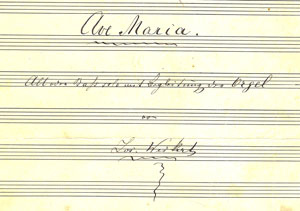 Ave Maria.
Alt oder Bass solo mit Begleitung der Orgel
von
Jos.